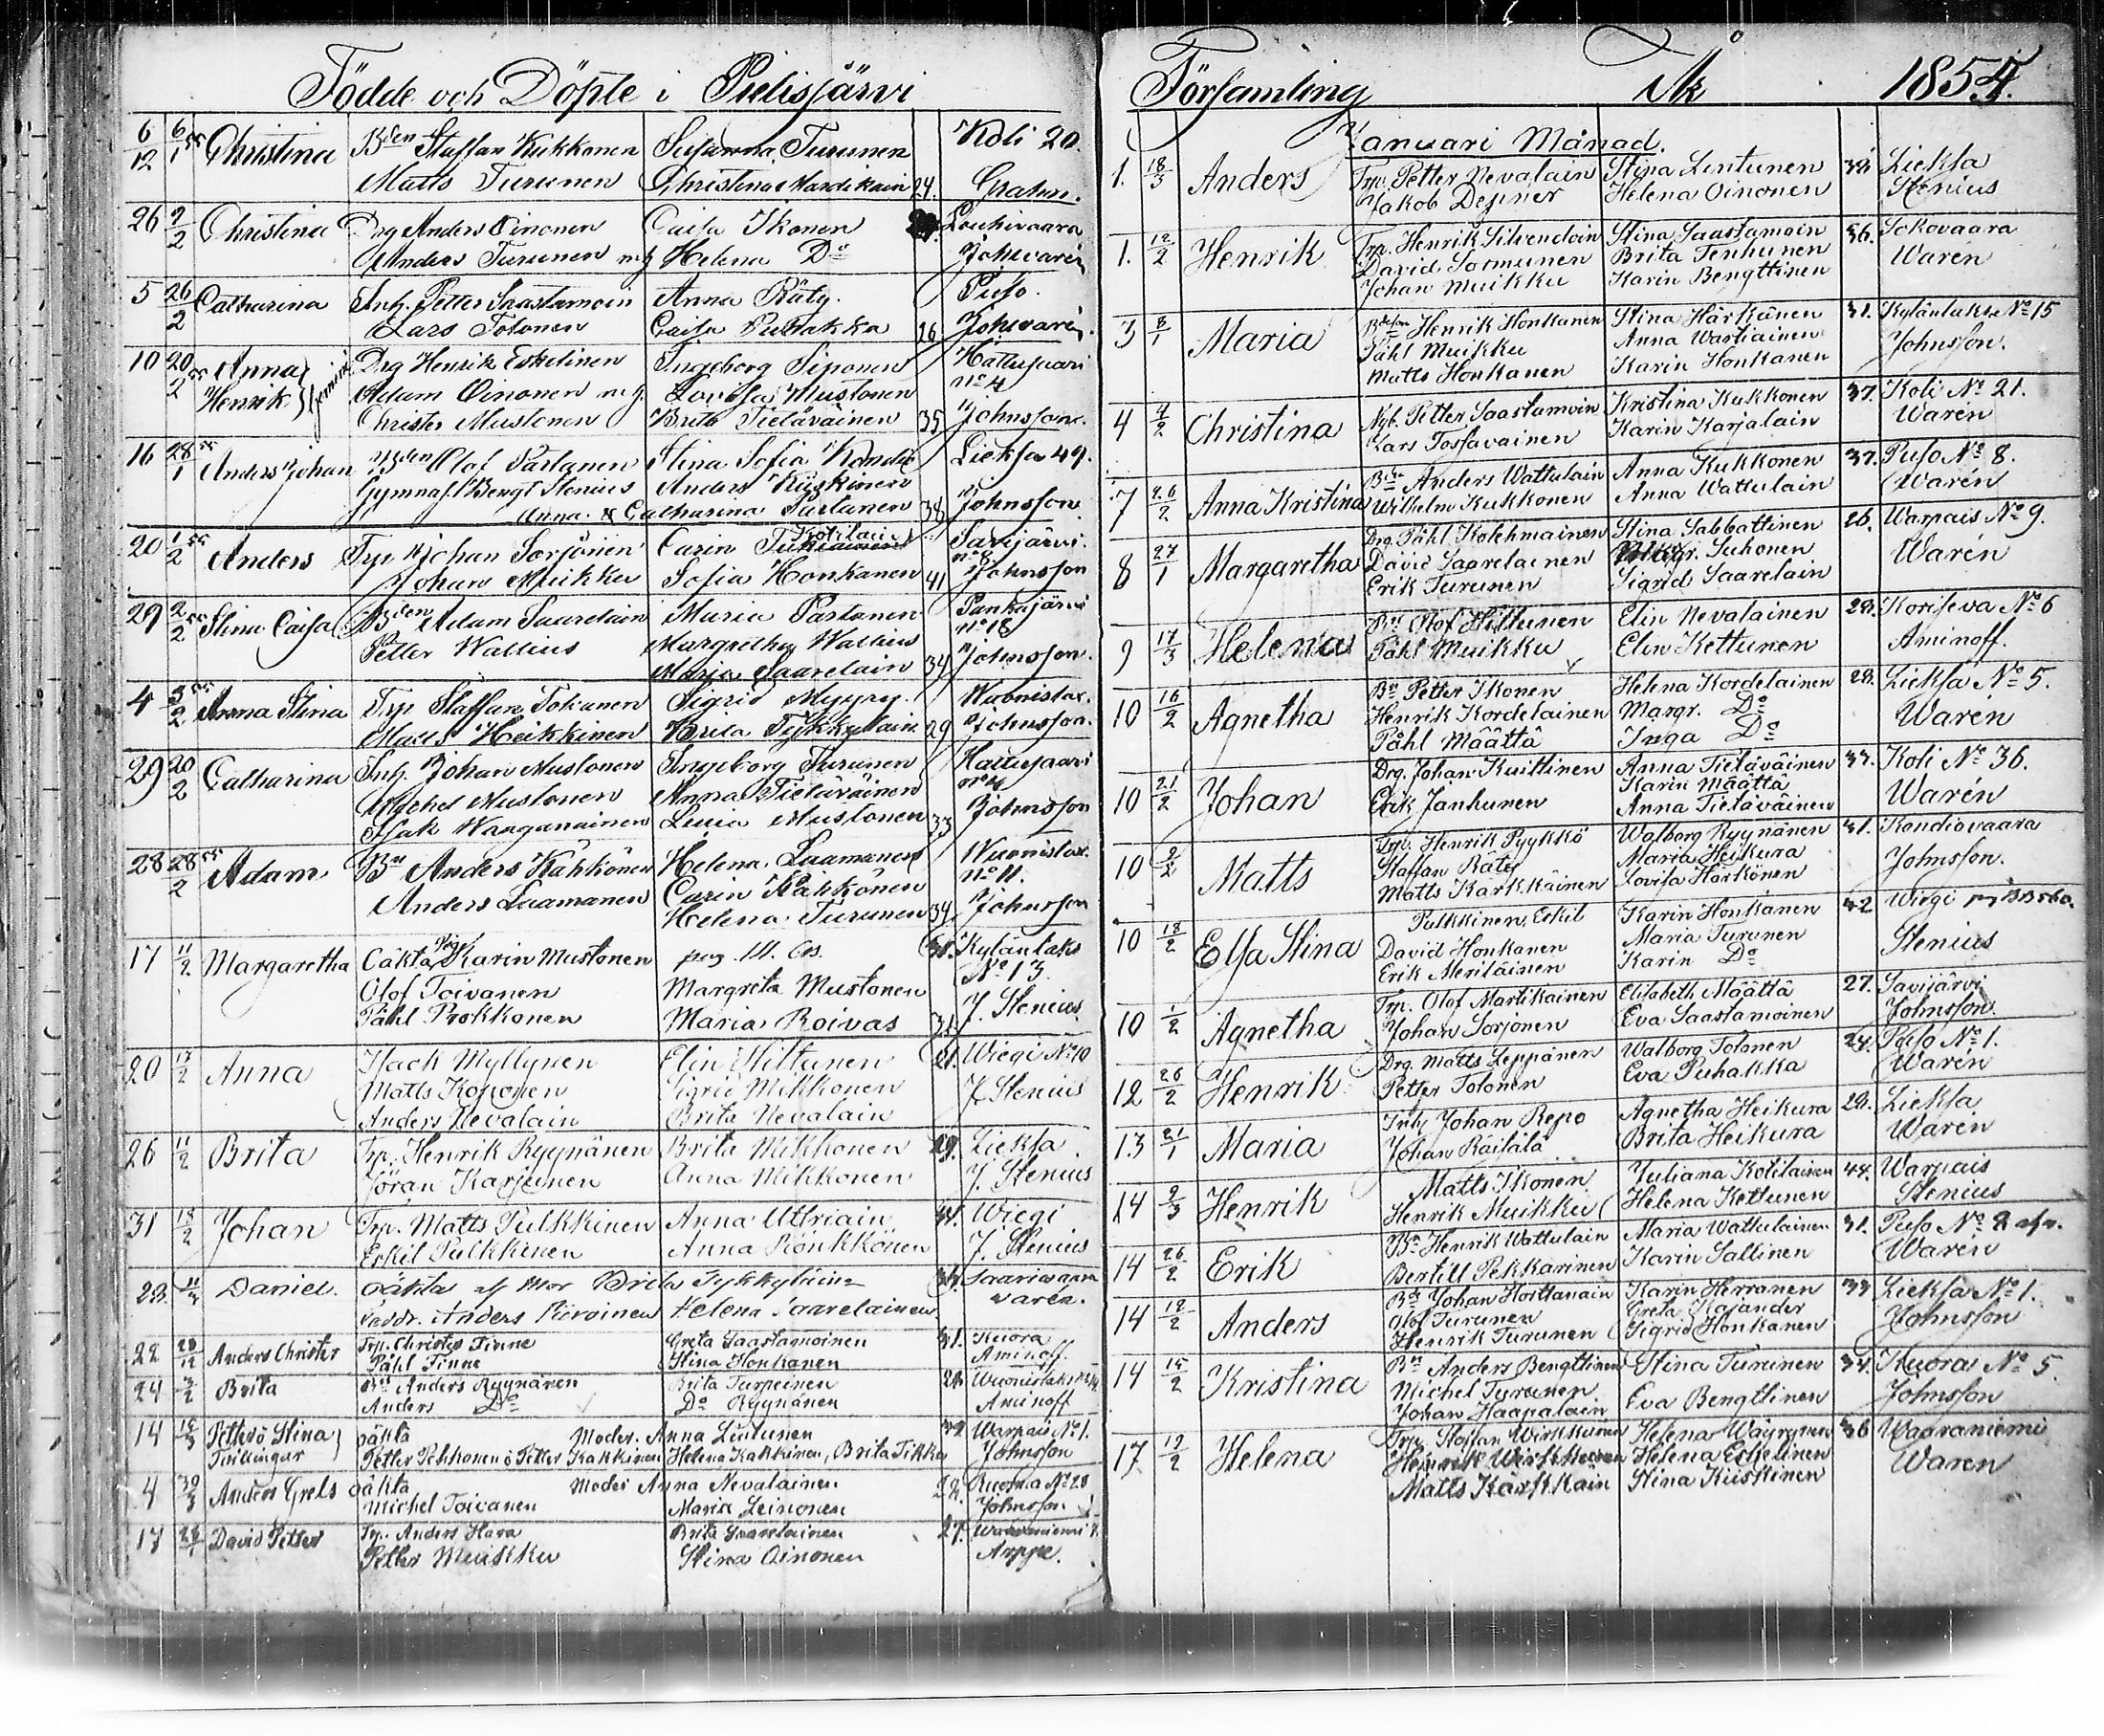 Födde och Döpte i Pielisjärvi
6/12 6/1 55 Christina Bden Staffan Kukkonen Susanna Turunen Koli 20.
Matts Turunen Christina Mardikain 24. Grahn.
26 2/2 Christina Drg Anders Oinonen Caisa Ikonen Louhivaara
Anders Turunen m.g. Helena Do Johnsson
5 26/2 Catharina Inh. Petter Saastamoin Anna Räty. Puso.
Lars Tolonen Caisa Puhakka 26 Johnsson.
10 20/2 55 Anna Drg Henrik Eskelinen Ingeborg Siponen Hattusaari
Henrik Gemini Adam Oinonen m.g. Lovisa Mustonen No 4
Christer Mustonen Brita Tieläväinen 35 Johnsson.
16 28/1 55 Anders Johan Bden Olof Partanen Stina Sofia Lieksa 49.
Gymnas. Bengt Stenius Anders Kiiskinen
Anna & Catharina Partanen 38 Johnsson
20 1/2 55 Anders Trp Johan Sorjonen Carin Kotilain Savijärvi.
No 8
Johan Muikku Sofia Honkanen 41 Johnsson
29 2/2 55 Stina Caisa Bden Adam Saarelain Maria Partanen Pankajärvi
No 18
Petter Wallius Margretha Wallius
Maria Saarelain 34 Johnsson.
4 3/2 55 Anna Stina Trp Staffan Tolvanen Sigrid Myyry. Wuonislax.
Matts Heikkinen Brita Tykkyläin 29 Johnsson.
29 20/2 Catharina Inh. Johan Mustonen Ingeborg Turunen Hattusaari
No 4
Michel Mustonen Anna Tieläväinen Johnsson
Isak Lena Mustonen 33
28 28/2 55 Adam Bn Anders Kähkönen Helena Laamanen Wuonislax.
No 11.
Anders Laamanen Carin Kähkönen
Helena Turunen 34. Johnsson
17 11/2 Margaretha Oäkta Pig. Karin Mustonen pag. Kylänlaks
No 13
Olof Toivanen Margreta Mustonen
Påhl Prokkonen Maria Roivas 31. J. Stenius
20 17/2 Anna Isack Myllynen Elin Hiltunen 21. Wiegi No 10
Matts Kononen Sigrid Mikkonen J. Stenius
Anders Nevalain Brita Nevalain
26 11/2 Brita Trp. Henrik Ryynänen Brita Mikkonen 29. Lieksa
Jöran Karjunen Anna Mikkonen J. Stenius
31 18/2 Johan Trp. Matts Pulkkinen Anna Uttriain 31. Wiegi
Eskil Pulkkinen Anna Rönkkönen J. Stenius
28. 11/3 Daniel. oäkta af Mor Brita Tykkyläin 34. Saarivaara
Faddr. Anders Piiroinen Helena Saarelainen Warén.
22 28/12 Anders Christer Trp. Christer Tinne Greta Saastamoinen 31. Kuora
Påhl Tinne Stina Honkanen Aminoff.
24 3/2 Brita Bn Anders Ryynänen Brita Turpeinen 28. Wuonislaks
Anders Do Do Ryynänen Aminoff
14 18/3 Petter o Stina oäkta Moder. Anna Lintunen 39 Warpais No 1.
Tvillingar Petter Pehkonen o Petter Kakkinen Helena Kakkinen, Brita Tikka Johnsson
4 30/3 Anders Grels oäkta Moder Anna Nevalainen 22. Ruuna No 28
Michel Toivanen Maria Leinonen Johnsson
17 28/1 David Petter Trp. Anders Hara Brita Saarelainen 27. Waaraniemi 7.
Petter Muikku Stina Oinonen Arppe.
Församling År 1854.
Januari Månad.
1. 18/3 Anders Trp. Petter Nevalain Stina Lintunen 38 Lieksa
Jakob Depner Helena Oinonen Stenius
1. 12/2 Henrik Trp. Henrik Silvendoin Stina Saastamoin 36. Sokovaara
David Sormunen Brita Tenhunen Warén
Johan Muikku Karin Bengttinen
3 8/1 Maria Bdeson Henrik Honkanen Stina Härkänen 31. Kylänlaks No 15
Påhl Muikku Anna Wartiainen Johnsson.
Matts Honkanen Karin Honkanen
4 4/2 Christina Nyb. Petter Saastamoin Kristina Kukkonen 37. Koli No 21.
Lars Tossavainen Karin Karjalain Warén
7 26/2 Anna Kristina Bdn Anders Wattulain Anna Kukkonen 37. Puso No 8.
Wilhelm Kukkonen Anna Wattulain Warén
8 27/1 Margaretha Drg. Påhl Kolehmainen Stina Sabbattinen 26. Warpais No 9.
David Saarelainen Margr. Suhonen Warén
Erik Turunen Sigrid Saarelain
9 17/3 Helena Bn Olof Hiltunen Elin Nevalainen 28. Koriseva No 6
Påhl Muikku Elin Kettunen Aminoff.
10 16/2 Agnetha Bn Petter Ikonen Helena Kordelainen 28. Lieksa No 5.
Henrik Kordelainen Margr. Do Warén
Påhl Määttä Inga Do
10 21/2 Johan Drg. Johan Kuittinen Anna Tieläväinen 33. Koli No 36.
Erik Janhunen Karin Määttä Warén
Anna Tieläväinen
10 2/2 Matts Trp. Henrik Pyykkö Walborg Ryynänen 31. Kondiovaara
Staffan Räty Maria Heikura Johnsson.
Matts Karkkäinen Lovisa Härkönen
10 18/2 Elsa Stina Pulkkinen, Eskil Karin Honkanen 42 Wiegi
David Honkanen Maria Turunen Stenius
Erik Meriläinen Karin Do
10 1/2 Agnetha Trp. Olof Martikainen Elisabeth Määttä 27. Savijärvi
Johan Sorjonen Eva Saastamoinen Johnsson.
12 26/2 Henrik Drg. Matts Leppänen Walborg Tolonen 24. Puso No 1.
Petter Tolonen Eva Puhakka Warén
13 21/1 Maria Inh. Johan Repo Agnetha Heikura 28. Lieksa
Johan Räilälä Brita Heikura Warén
14 9/3 Henrik Matts Ikonen Juliana Kotilainen 44. Warpais
Henrik Muikku Helena Kettunen Stenius
14 26/2 Erik Bn Henrik Wattulain Maria Wattulainen 31. Puso No 8
Bertill Pekkarinen Karin Sallinen Warén
14 12/2 Anders Bn Johan Horttanain Karin Herranen 33 Lieksa No 1.
Olof Turunen Greta Kajander Johnsson
Henrik Turunen Sigrid Honkanen
14 15/2 Kristina Bn Anders Bengttinen Stina Turunen 34. Kuora No 5.
Michel Turunen Eva Bengttinen Johnsson
Johan Haapalain
17 12/2 Helena Trp. Staffan Wirkkunen Helena Wäyrynen 36 Waaraniemi
Henrik Wirkkunen Helena Eskelinen Warén
Matts Karkkain Stina Kiiskinen